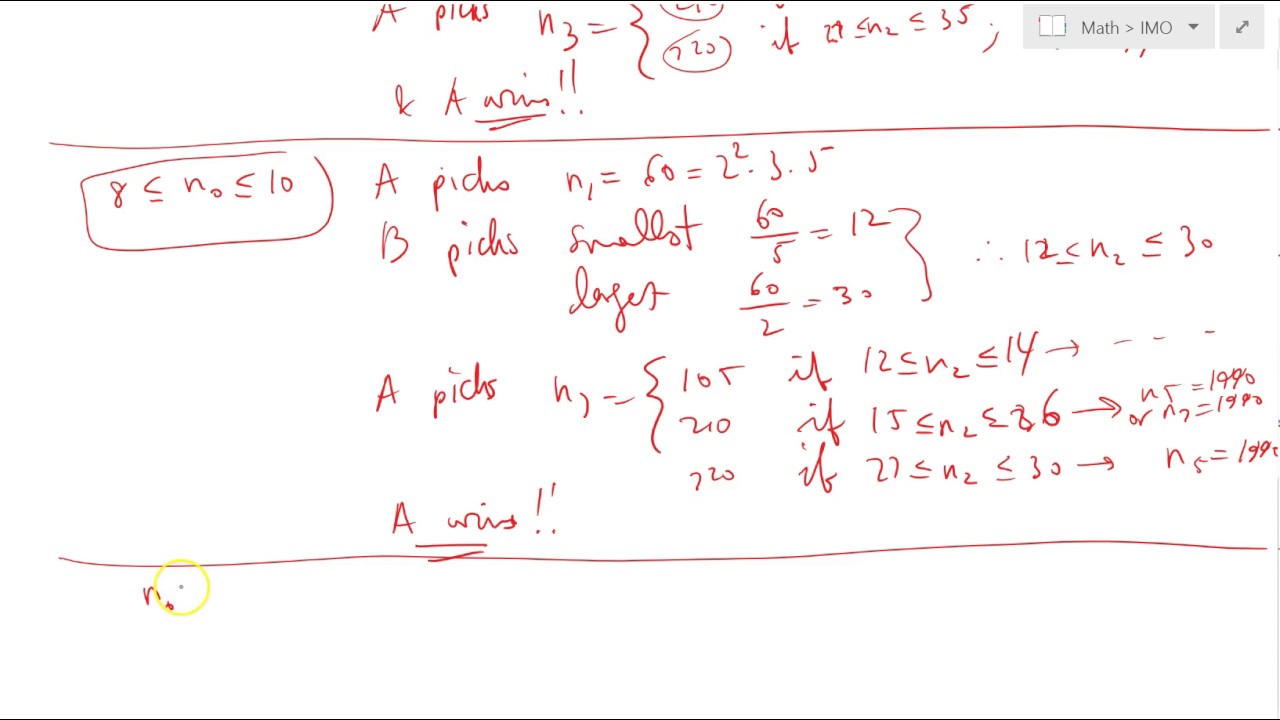 A picks n₃ = { if 21 ≤ n₂ ≤ 35 ;
720
& A wins!!
Math > IMO
8 ≤ n₀ ≤ 10
A picks n₁ = 60 = 2² · 3 · 5
B picks smallest 60/5 = 12
largest 60/2 = 30
∴ 12 ≤ n₂ ≤ 30
A picks n₃ = { 105 if 12 ≤ n₂ ≤ 14 → - - -
210 if 15 ≤ n₂ ≤ 26 → n₅ = 1990
or n₇ = 1990
720 if 27 ≤ n₂ ≤ 30 → n₅ = 199
A wins!!
n₀